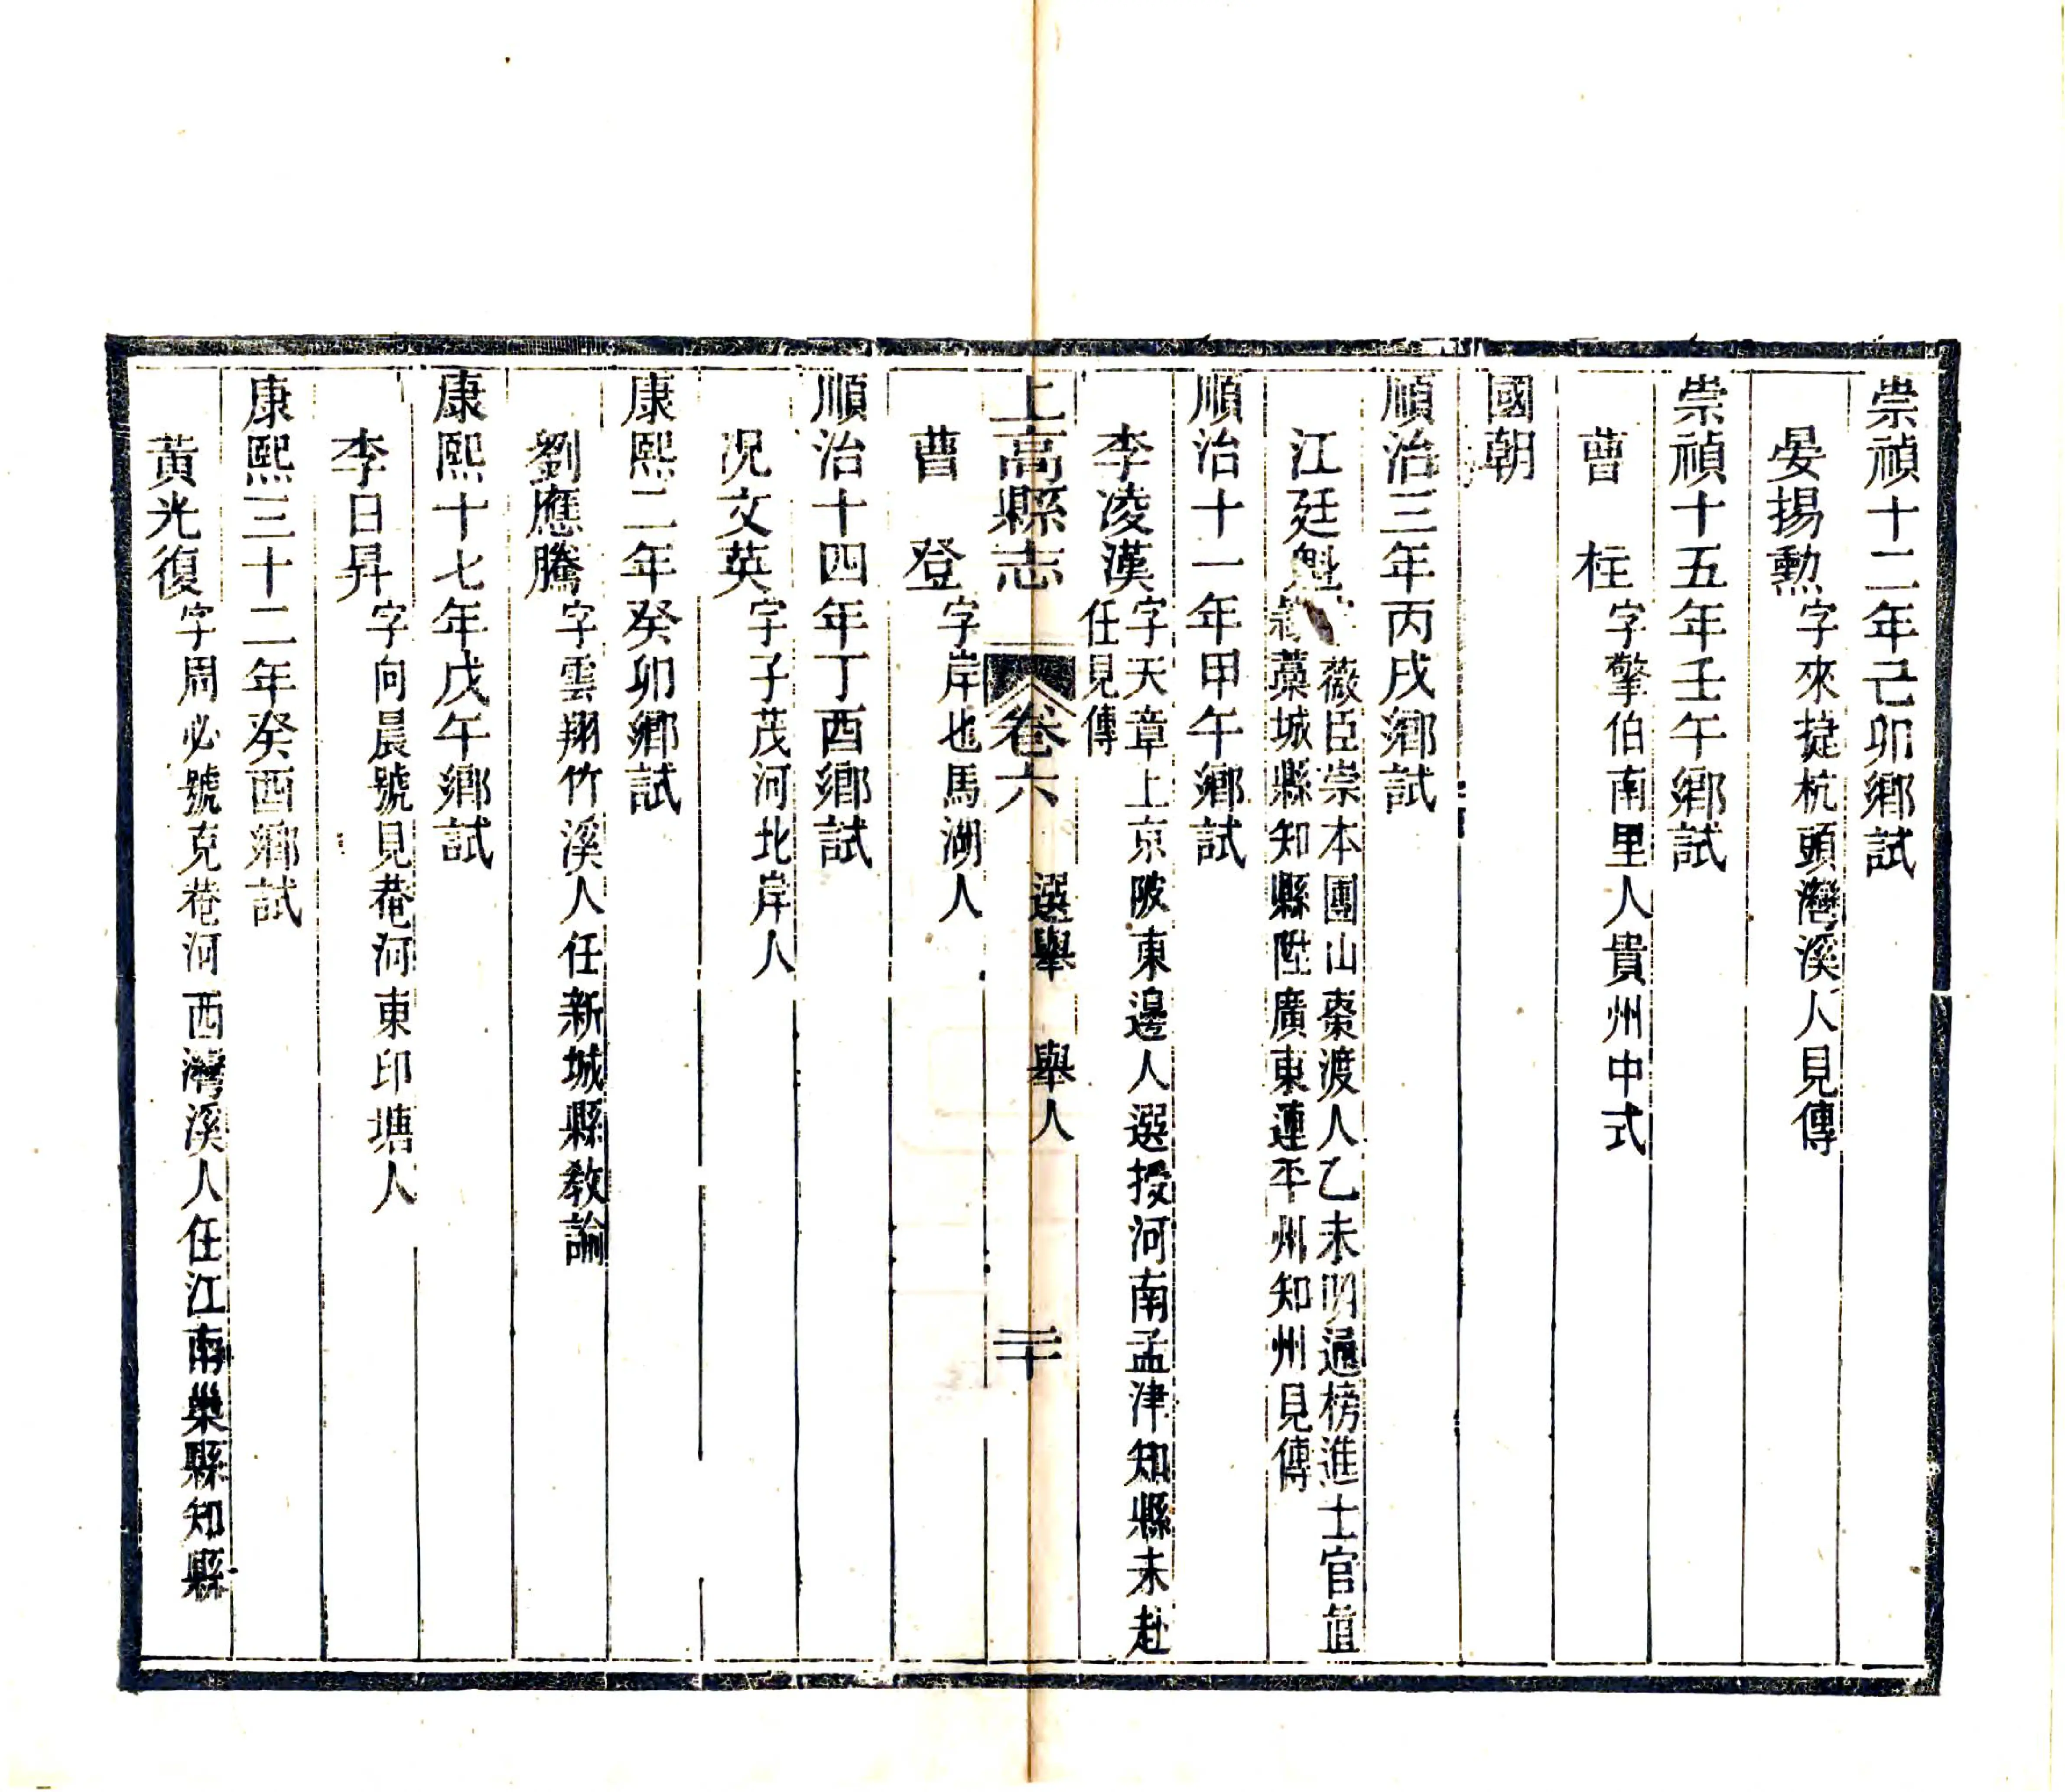 崇禎十二年己卯鄉試
晏揚勲字來捷杭頭灣溪人見傳
崇禎十五年壬午鄉試
曹柱字擎伯南里人貴州中式
國朝
順治三年丙戌鄉試
江廷魁
薇臣崇本團山棗渡人乙未明通榜進士官直
藁城縣知縣陞廣東連平州知州見傳
順治十一年甲午鄉試
李凌漢
字天章上京陂東邊人選授河南孟津知縣未赴
任見傳
上高縣志 卷六 選舉 舉人 二十
曹登字岸也馬湖人
順治十四年丁酉鄉試
况文英字子茂河北岸人
康熙二年癸卯鄉試
劉應騰字雲翔竹溪人任新城縣教諭
康熙十七年戊午鄉試
李日昇字向晨號見菴河東印塘人
康熙三十二年癸酉鄉試
黃光復字周必號克菴河西灣溪人任江南巢縣知縣